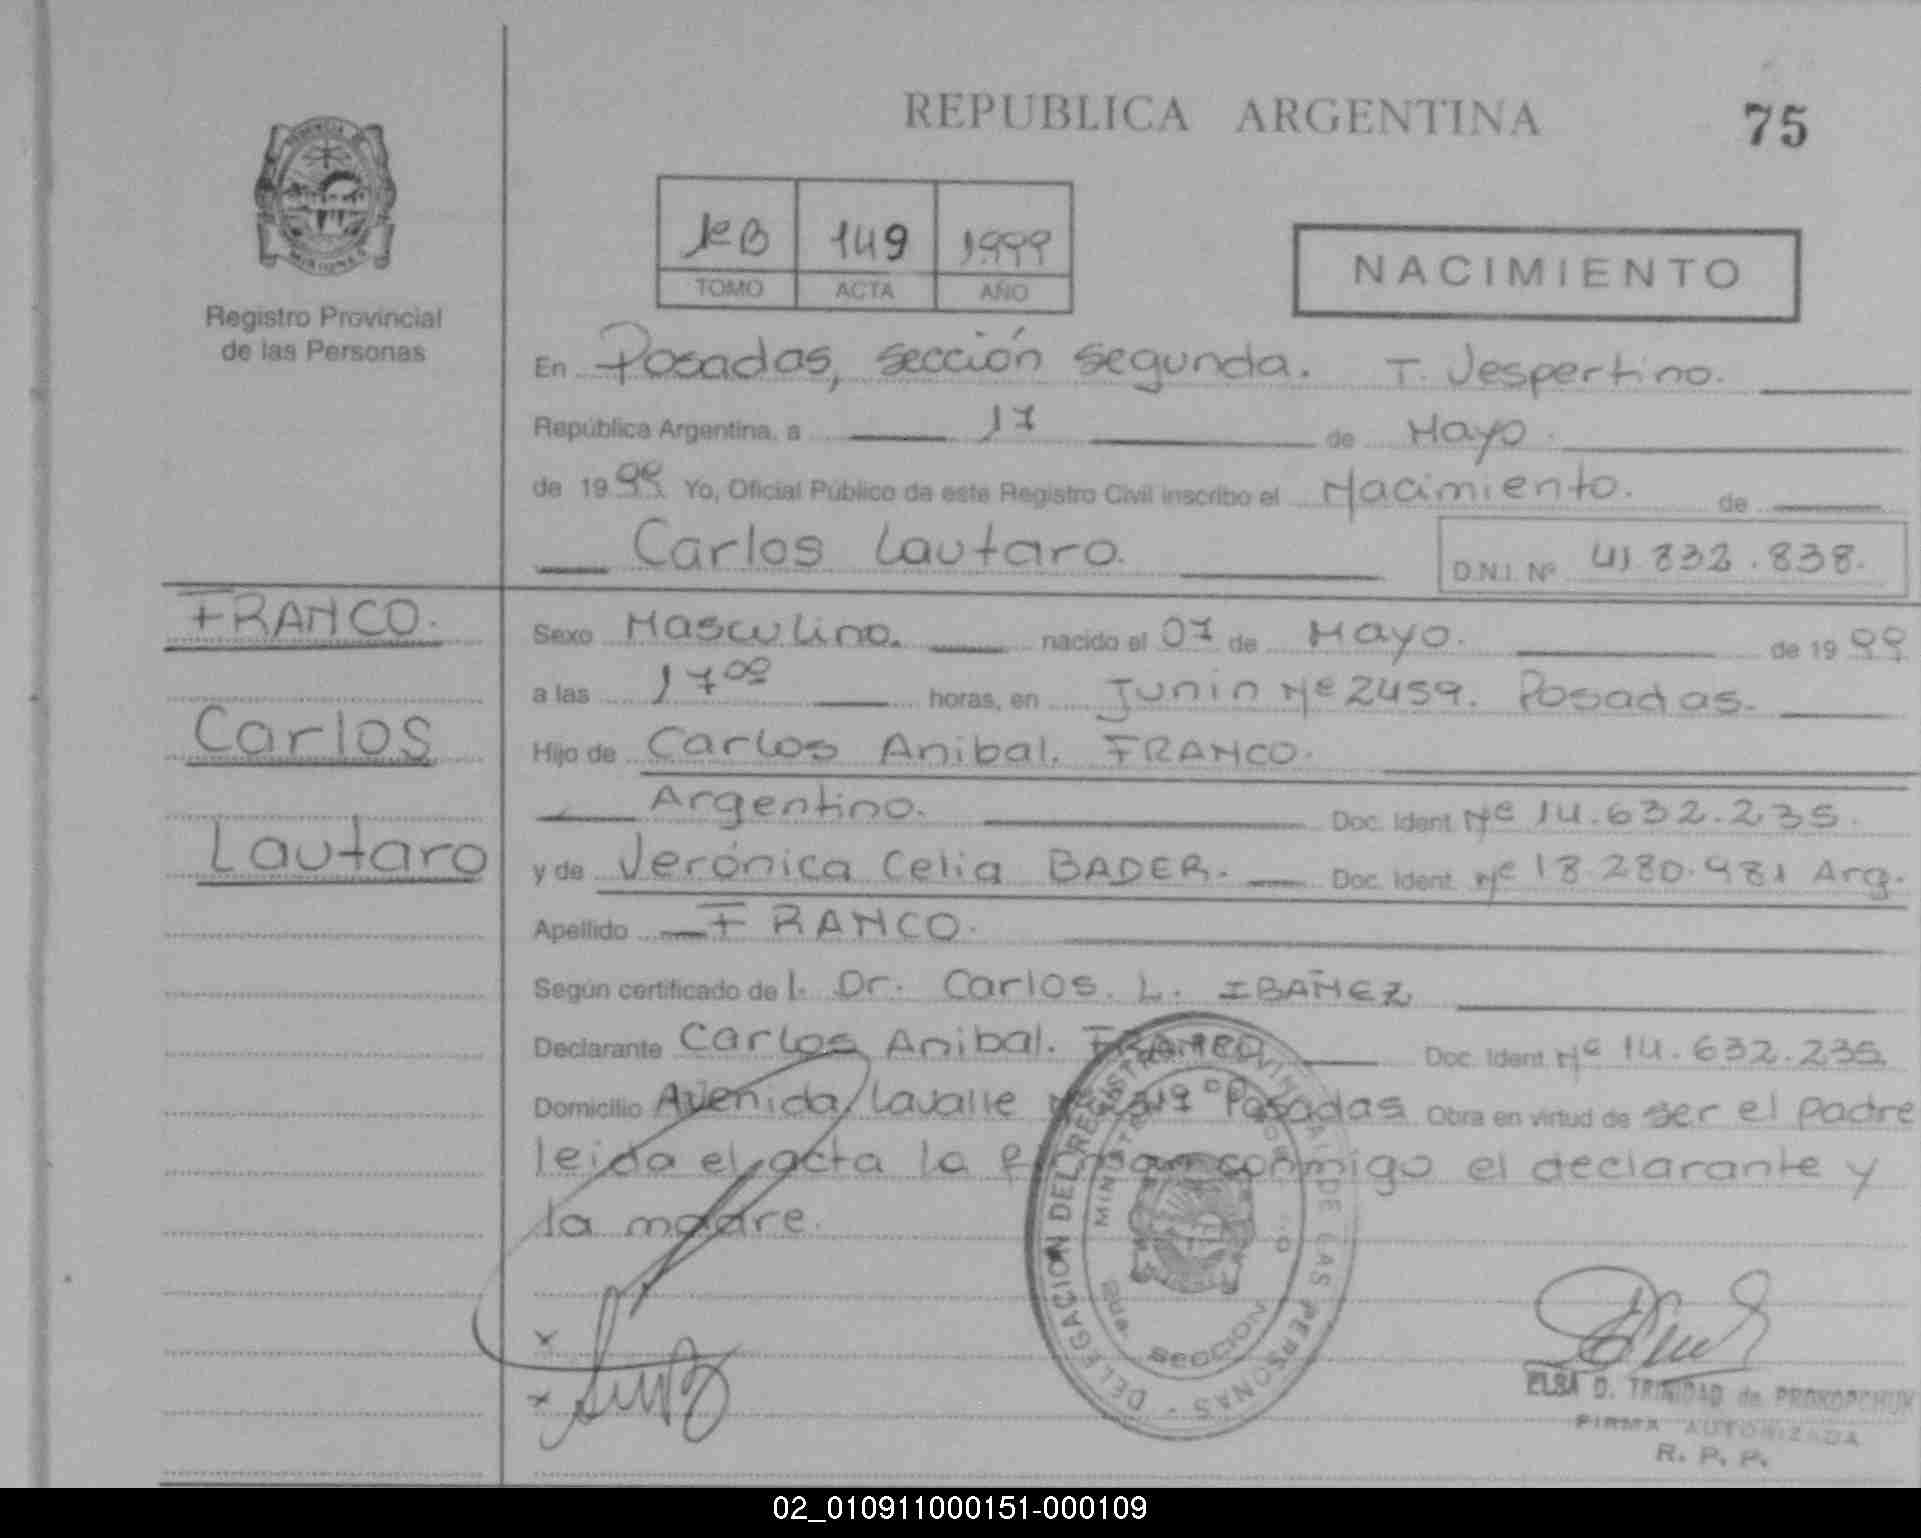 REPUBLICA ARGENTINA
75
1º B 149 1999
TOMO ACTA AÑO
NACIMIENTO
Registro Provincial
de las Personas
En Posadas, sección segunda. T. Vespertino.
República Argentina, a 17 de Mayo.
de 1999 Yo, Oficial Público de este Registro Civil inscribo el Nacimiento. de
Carlos Lautaro.
D.N.I. Nº 41.832.838.
FRANCO.
Carlos
Lautaro
Sexo Masculino. nacido el 07 de Mayo. de 1999
a las 17ºº horas, en Junin Nº 2459. Posadas.
Hijo de Carlos Anibal. FRANCO.
Argentino. Doc. Ident. Nº 14.632.235.
y de Verónica Celia BADER. Doc. Ident. Nº 18.280.981 Arg.
Apellido FRANCO.
Según certificado de l. Dr. Carlos. L. IBAÑEZ
Declarante Carlos Anibal. FRANCO Doc. Ident. Nº 14.632.235.
Domicilio Avenida Lavalle Posadas Obra en virtud de ser el padre
leida el acta la firman conmigo el declarante y
la madre.
x
x
DELEGACION DEL REGISTRO PROVINCIAL DE LAS PERSONAS
SECCION
ELSA D. TRINIDAD de PROKOPCHUK
FIRMA AUTORIZADA
R. P. P.
02_010911000151-000109